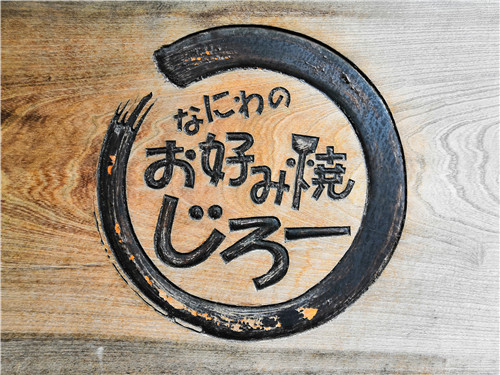 なにわの
お好み焼
じろー